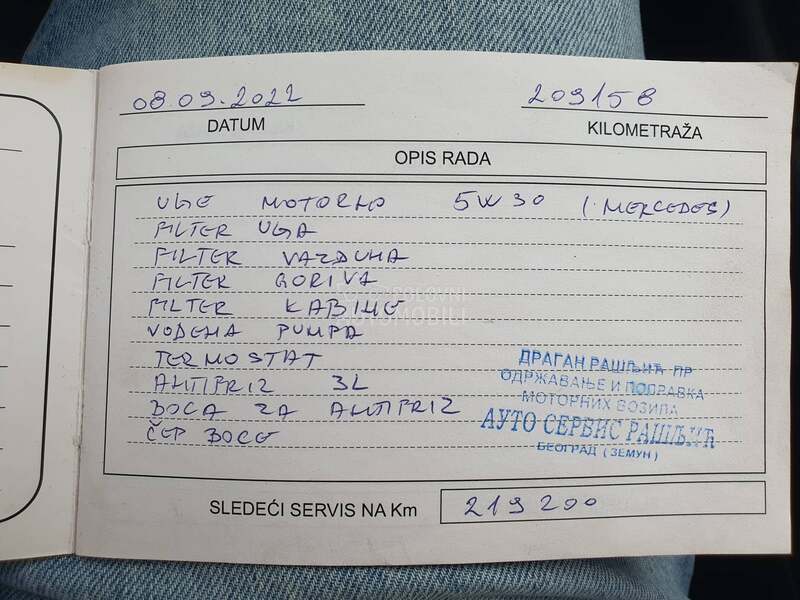 08.09.2022
209158
DATUM
KILOMETRAŽA
OPIS RADA
ULJE MOTORNO 5W30 (MERCEDES)
FILTER ULJA
FILTER VAZDUHA
FILTER GORIVA
FILTER KABINE
VODENA PUMPA
TERMOSTAT
ANTIFRIZ 3L
BOCA ZA ANTIFRIZ
ČEP BOCE
ДРАГАН РАШЉИЋ ПР
ОДРЖАВАЊЕ И ПОПРАВКА
МОТОРНИХ ВОЗИЛА
АУТО СЕРВИС РАШЉИЋ
БЕОГРАД (ЗЕМУН)
SLEDEĆI SERVIS NA Km
219200